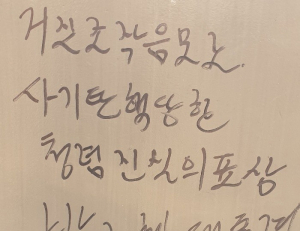 거짓조작음모로
사기탄핵당한
청렴진실의표상